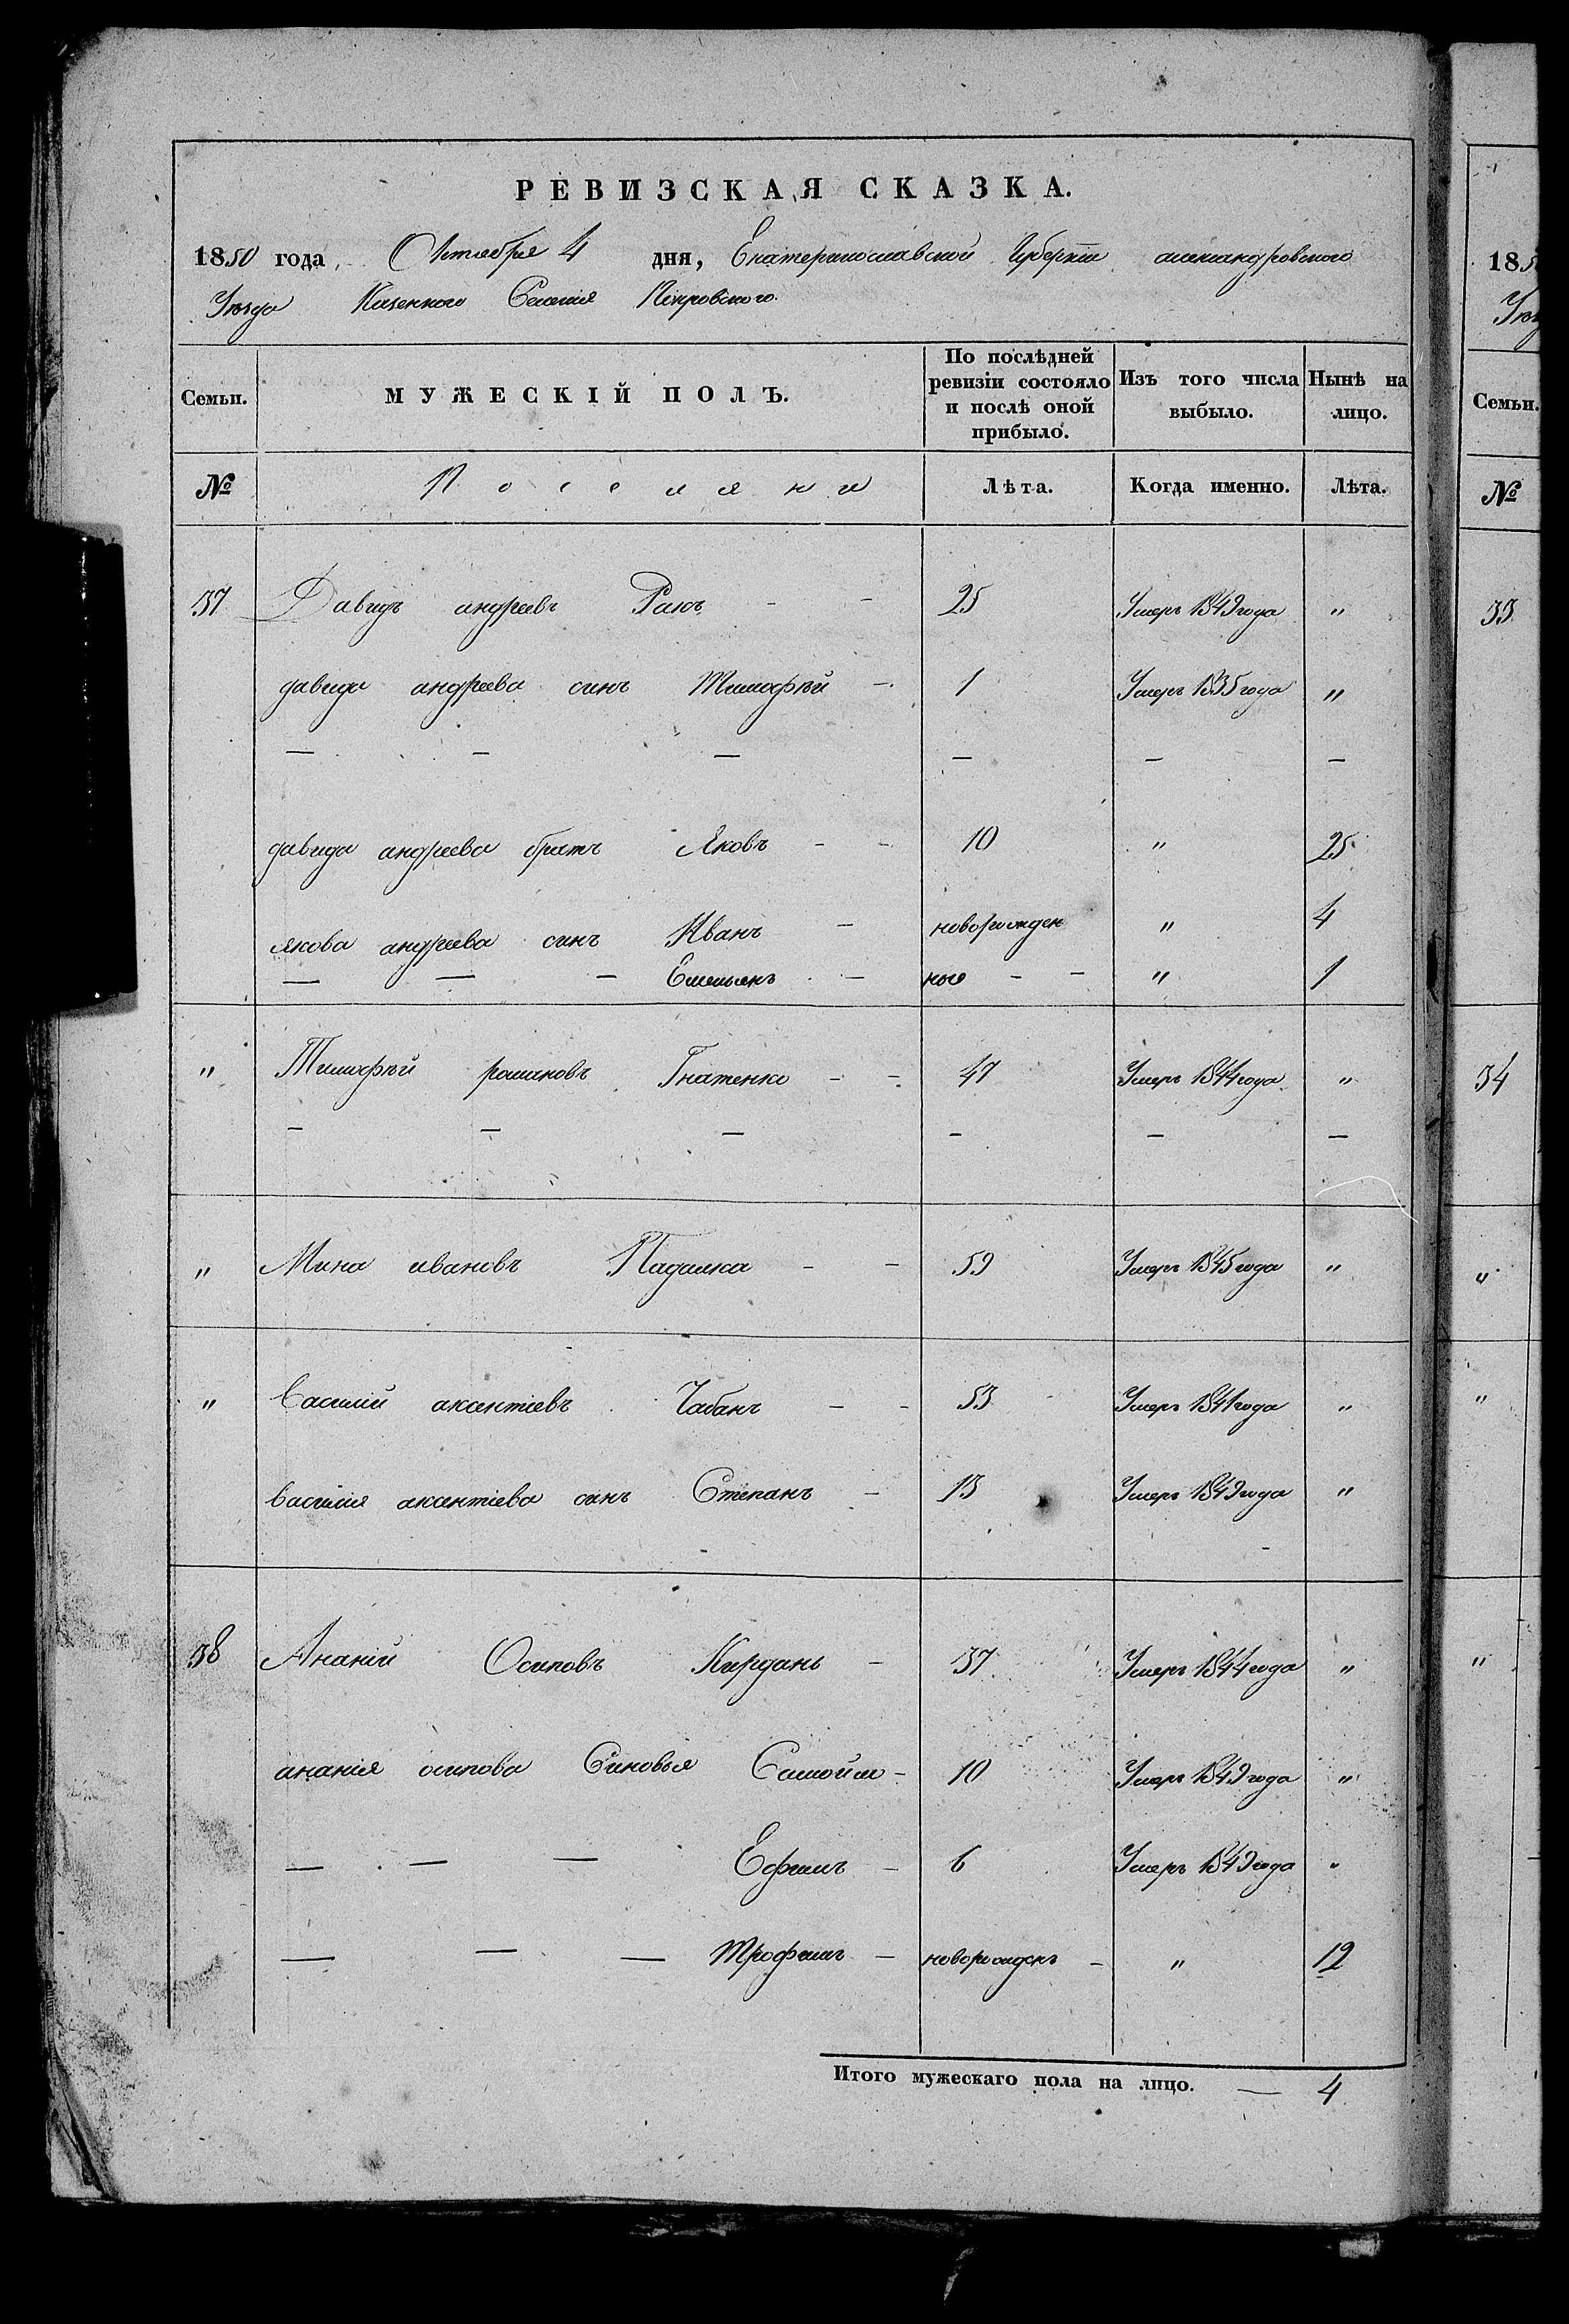 РЕВИЗСКАЯ СКАЗКА.
1850 года, Октебря 4 дня, Екатеринославской Губерніи александровского
Уезда Казенного Селенія Покровского.
Семьи. МУЖЕСКІЙ ПОЛЪ. По послѣдней ревизіи состояло и послѣ оной прибыло. Изъ того числа выбыло. Нынѣ на лицо.
№ Поселяни Лѣта. Когда именно. Лѣта.
37 Давидъ андреевъ Ракъ - - 25 Умеръ 1849 года "
давида андреева синъ Тимофѣй -. 1 Умеръ 1835 года "
— — — — — —
давида андреева братъ Яковъ - - 10 " 25
якова андреева синъ Иванъ - новорожден " 4
— — — Емельянъ - ные - - " 1
" Тимофѣй романовъ Гнатенко - - 47 Умеръ 1844 года "
— — — — — —
" Мина ивановъ Падалка - - 59 Умеръ 1845 года "
" Василій аксентіевъ Чабанъ - - 53 Умеръ 1841 года "
василія аксентіева синъ Степанъ - 13 Умеръ 1849 года "
38 Ананій Осиповъ Кирдань - 37 Умеръ 1844 года "
ананія осипова Синовья Самойло - 10 Умеръ 1849 года "
— — — Ефимъ - 6 Умеръ 1849 года "
— — — Трофимъ - новорожденъ - " 12
Итого мужескаго пола на лицо. — 4
185
Уез
Семьи.
№
33
34
"
"
"